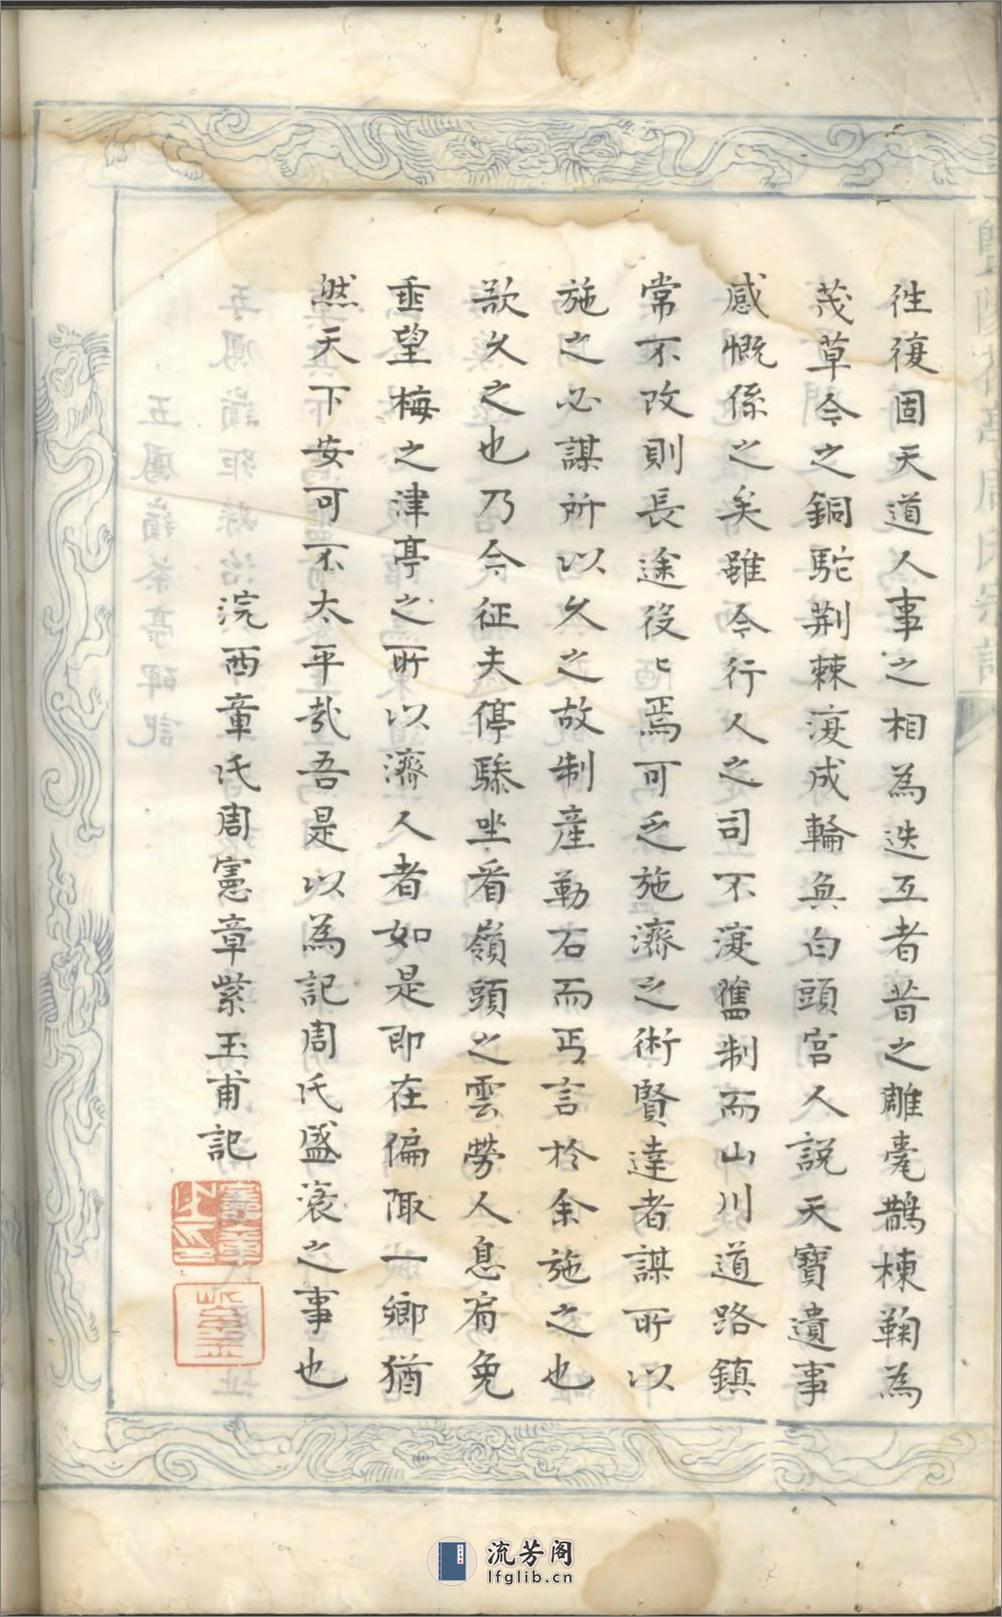 徃復固天道人事之相為迭互者昔之雕甍鵲棟鞠為
茂草今之銅駝荆棘渡成輪奐白頭宮人說天寶遺事
感慨係之矣雖今行人之司不渡舊制而山川道路鎮
常不改則長途役〻焉可乏施濟之術賢達者謀所以
施之必謀所以久之故制產勒石而丐言於余施之也
欲久之也乃今征夫停驂坐看嶺頭之雲勞人息肩免
垂望梅之津亭之所以濟人者如是即在偏陬一鄉猶
然天下安可不太平哉吾是以為記周氏盛衰之事也
浣西章氏周憲章紫玉甫記
憲章之印
紫玉
流芳阁
lfglib.cn